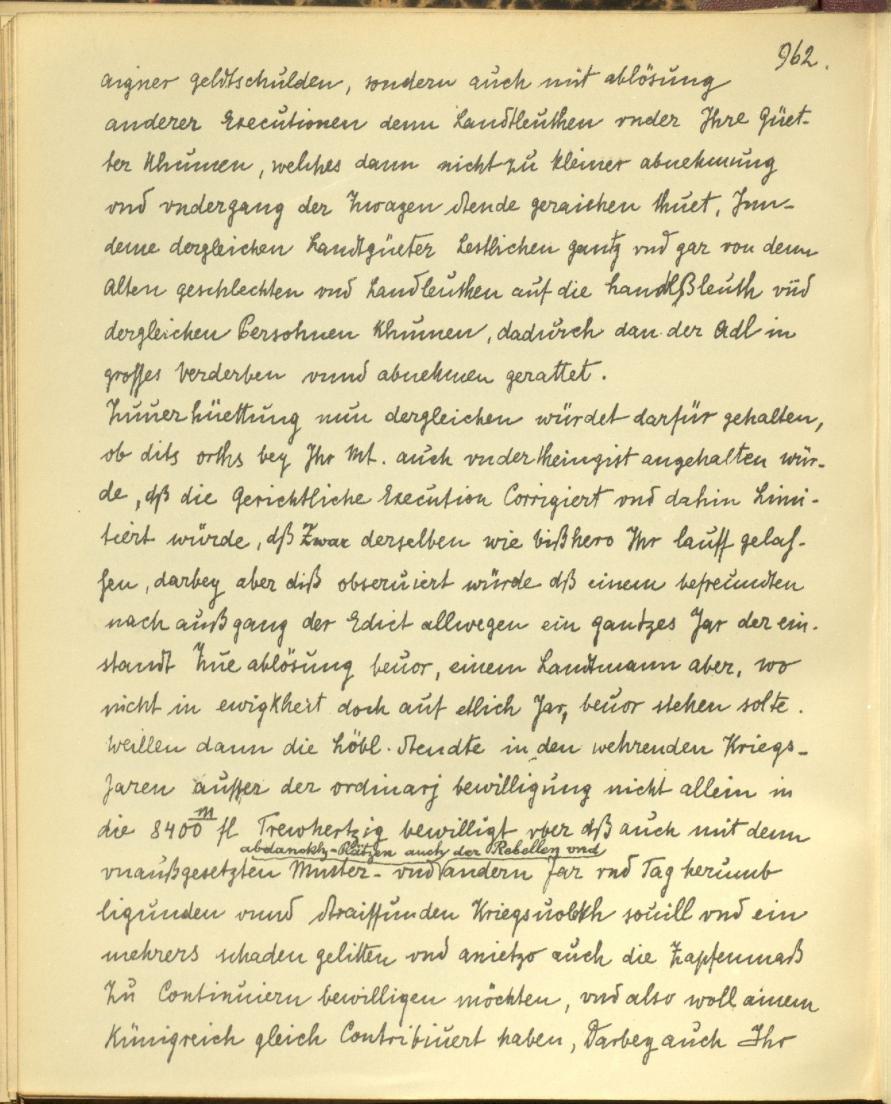 962.
aigner geldtschulden, sondern auch mit ablösung
anderer Executionen denn Landtleuthen vnder Ihre Güet-
ter khumen, welches dann nicht zu kleiner abnehmung
vnd vndergang der Zwayen Stende geraichen thuet, Inn-
deme dergleichen Landtgüeter Lestlichen gantz vnd gar von denn
Alten geschlechten vnd Landleuthen auf die handlßleuth vnd
dergleichen Persohnen khumen, dadurch dan der Adl in
grosses verderben vnnd abnehmen gerattet.
Zuuerhüettung nun dergleichen würdet darfür gehalten,
ob dits orths bey Ihr Mt. auch vnderthenigist angehalten wür-
de, dß die Gerichtliche Execution Corrigiert vnd dahin Limi-
tiert würde, dß Zwar derselben wie bißhero Ihr lauff gelas-
sen, darbey aber diß obseruiert würde dß einem befreundten
nach außgang der Edict allwegen ein gantzes Jar der ein-
standt Zue ablösung beuor, einem Landtmann aber, wo
nicht in ewigkheit doch auf etlich Jar, beuor stehen solte.
Weillen dann die Löbl. Stendte in den wehrenden Kriegs-
Jaren ausser der ordinarj bewilligung nicht allein in
die 8400 m fl Trewhertzig bewilligt vber dß auch mit denn
abdanckh-Plätzen auch der Rebellen vnd
vnaußgesetzten Muster- vnd andern Jar vnd Tag herumb
ligunden vnnd straiffunden Kriegsuolkh souill vnd ein
mehrers schaden gelitten vnd anietzo auch die Zapfenmaß
Zu Continuiern bewilligen möchten, vnd also woll ainem
Künigreich gleich Contribuiert haben, Darbey auch Ihr